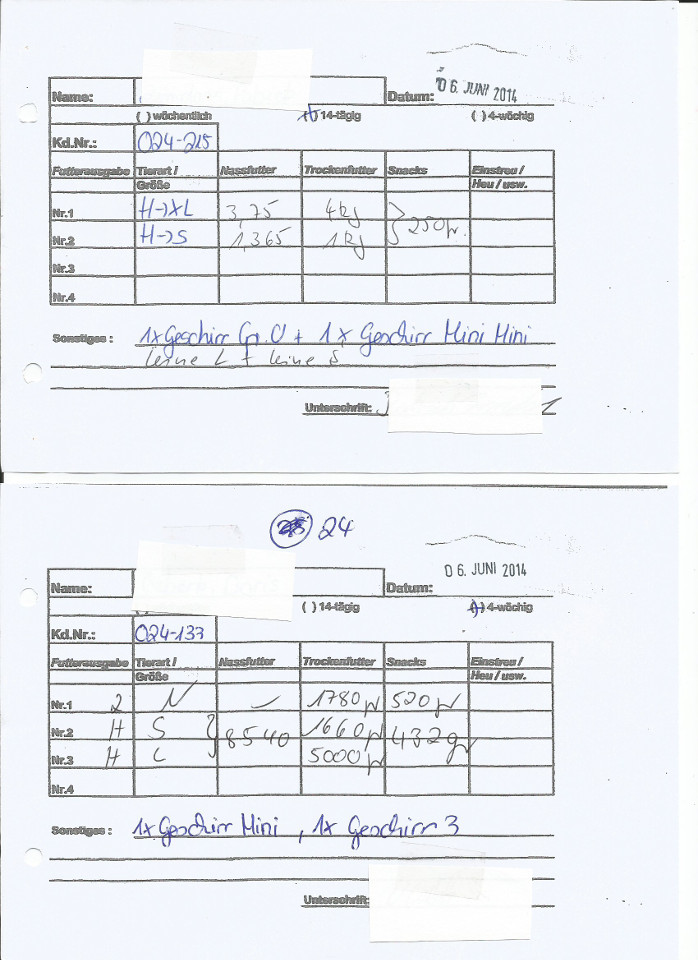 Name: Datum: 06. JUNI 2014
( ) wöchentlich ( ) 14-tägig ( ) 4-wöchig
Kd.Nr.: 024-215
Futterausgabe Tierart / Nassfutter Trockenfutter Snacks Einstreu /
Größe Heu / usw.
Nr.1 H→XL 3,75 4kg
250gr.
Nr.2 H→S 1,365 1kg
Nr.3
Nr.4
Sonstiges : 1x Geschirr Gr. 0 + 1x Geschirr Mini Mini
Leine L + Leine S
Unterschrift:
24
Name: Datum: 06. JUNI 2014
( ) 14-tägig ( ) 4-wöchig
Kd.Nr.: 024-133
Futterausgabe Tierart / Nassfutter Trockenfutter Snacks Einstreu /
Größe Heu / usw.
Nr.1 2 N 1780gr 520gr
Nr.2 H S 8540 1660gr 432gr
Nr.3 H L 5000gr
Nr.4
Sonstiges : 1x Geschirr Mini , 1x Geschirr 3
Unterschrift: